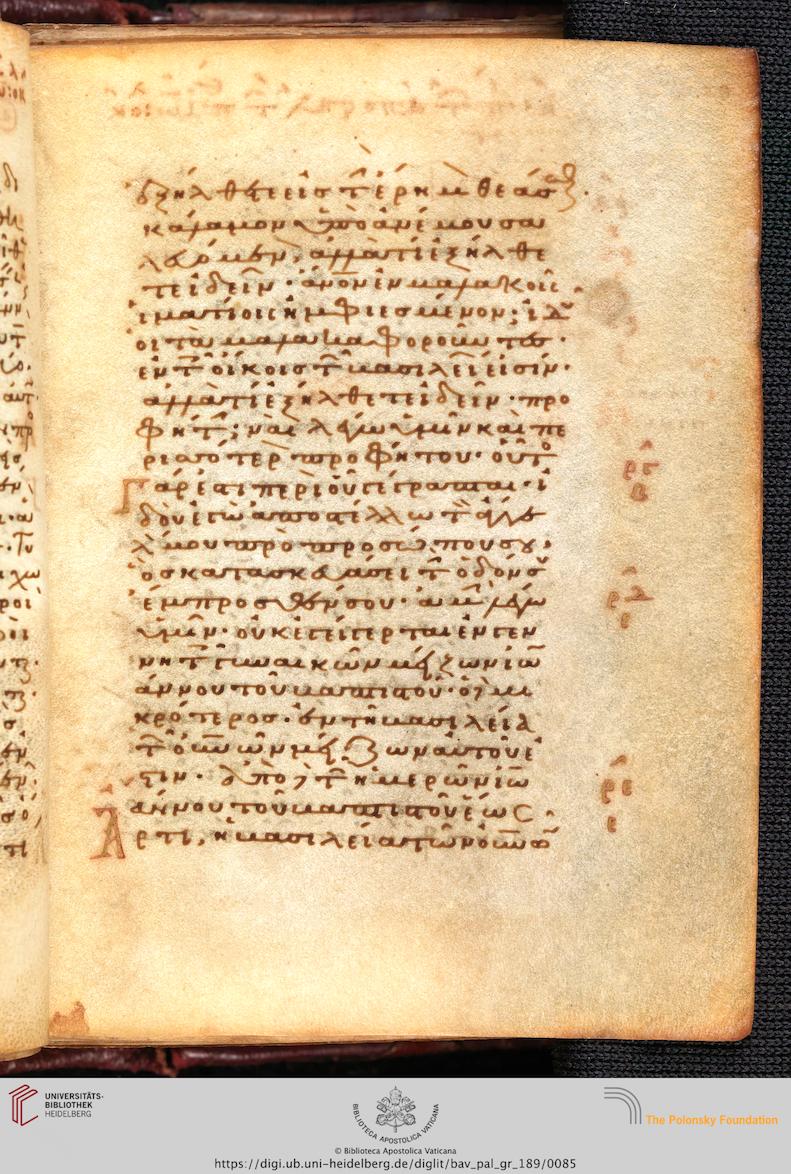 ἐξήλθετε εἰς τ ἔρημ θεάσασθ
κάλαμον ὑπὸ ἀνέμου σα
λευόμεν, ἀλλὰ τί ἐξήλθε
τε ἰδεῖν· ἄνον ἐν μαλακοῖς
ἱματίοις ἠμφιεσμένον· ἰδ
οἱ τὰ μαλακὰ φοροῦντες·
ἐν τ οἴκοις τ βασιλεί εἰσίν·
ἀλλὰ τί ἐξήλθετε ἰδεῖν· προ
φήτ; ναὶ λέγω ὑμῖν καὶ πε
ρισσότερ προφήτου· οὗτ
Γάρ ἐστι περὶ οὗ γέγραπται· ἰ
δοὺ ἐγὼ ἀποστέλλω τ ἄγγε
λ μου πρὸ προσώπου σου·
ὃς κατασκευάσει τ ὁδόν σ
ἔμπροσθέν σου· ἀμ λέγω
ὑμῖν· οὐκ ἐγήγερται ἐν γεν
νητ γυναικῶν μείζων ἰω
άννου τοῦ βαπτιστοῦ· ὁ δὲ μι
κρότερος· ἐν τῆ βασιλεία
τ οὐνῶν μείζων αὐτοῦ ἐσ
τιν· ἀπὸ δὲ τ ἡμερῶν ἰω
άννου τοῦ βαπτιστοῦ ἕως
Ἄρτι, ἡ βασιλεία τῶν οὐνῶν
ργ
β
ρδ
ε
ρε
ε
UNIVERSITÄTS-
BIBLIOTHEK
HEIDELBERG
BIBLIOTECA APOSTOLICA VATICANA
The Polonsky Foundation
© Biblioteca Apostolica Vaticana
https://digi.ub.uni-heidelberg.de/diglit/bav_pal_gr_189/0085